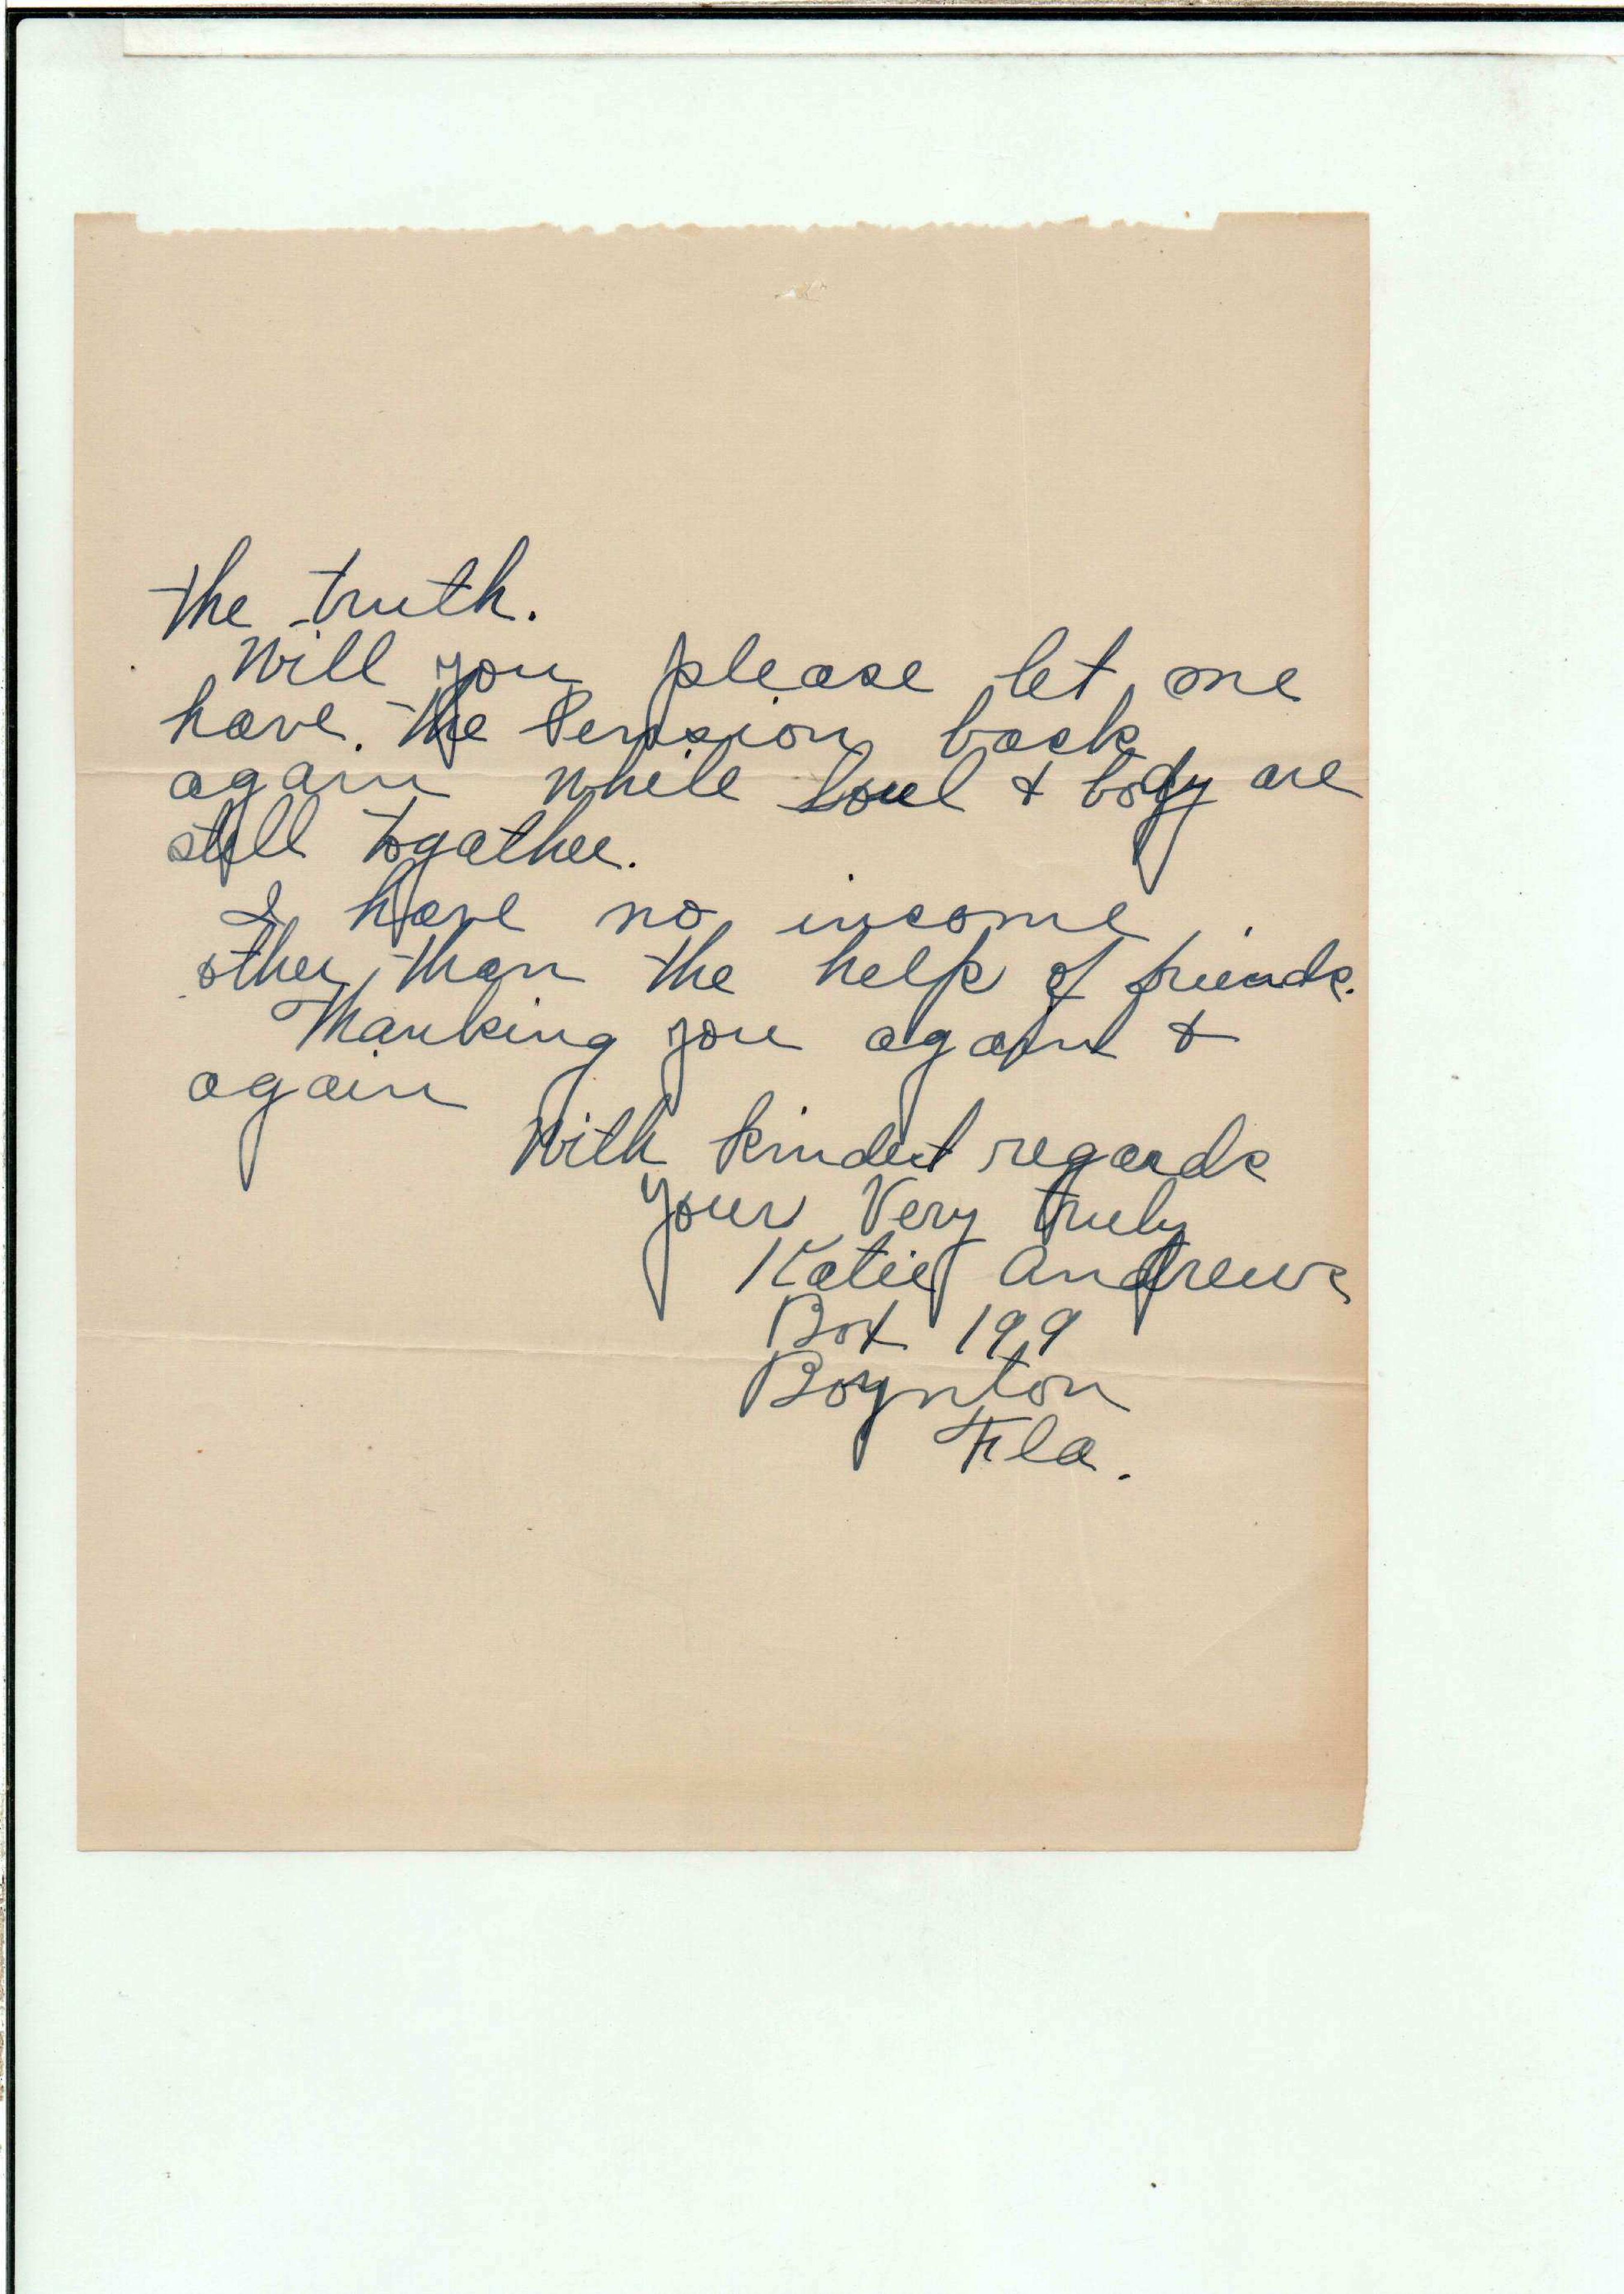 the truth.
Will you please let me
have the Pension back
again while Soul & body are
still togather.
I have no income
other than the help of friends.
Thanking you again &
again
With kindest regards
Your Very truly
Katie Andrews
Box 199
Boynton
Fla.